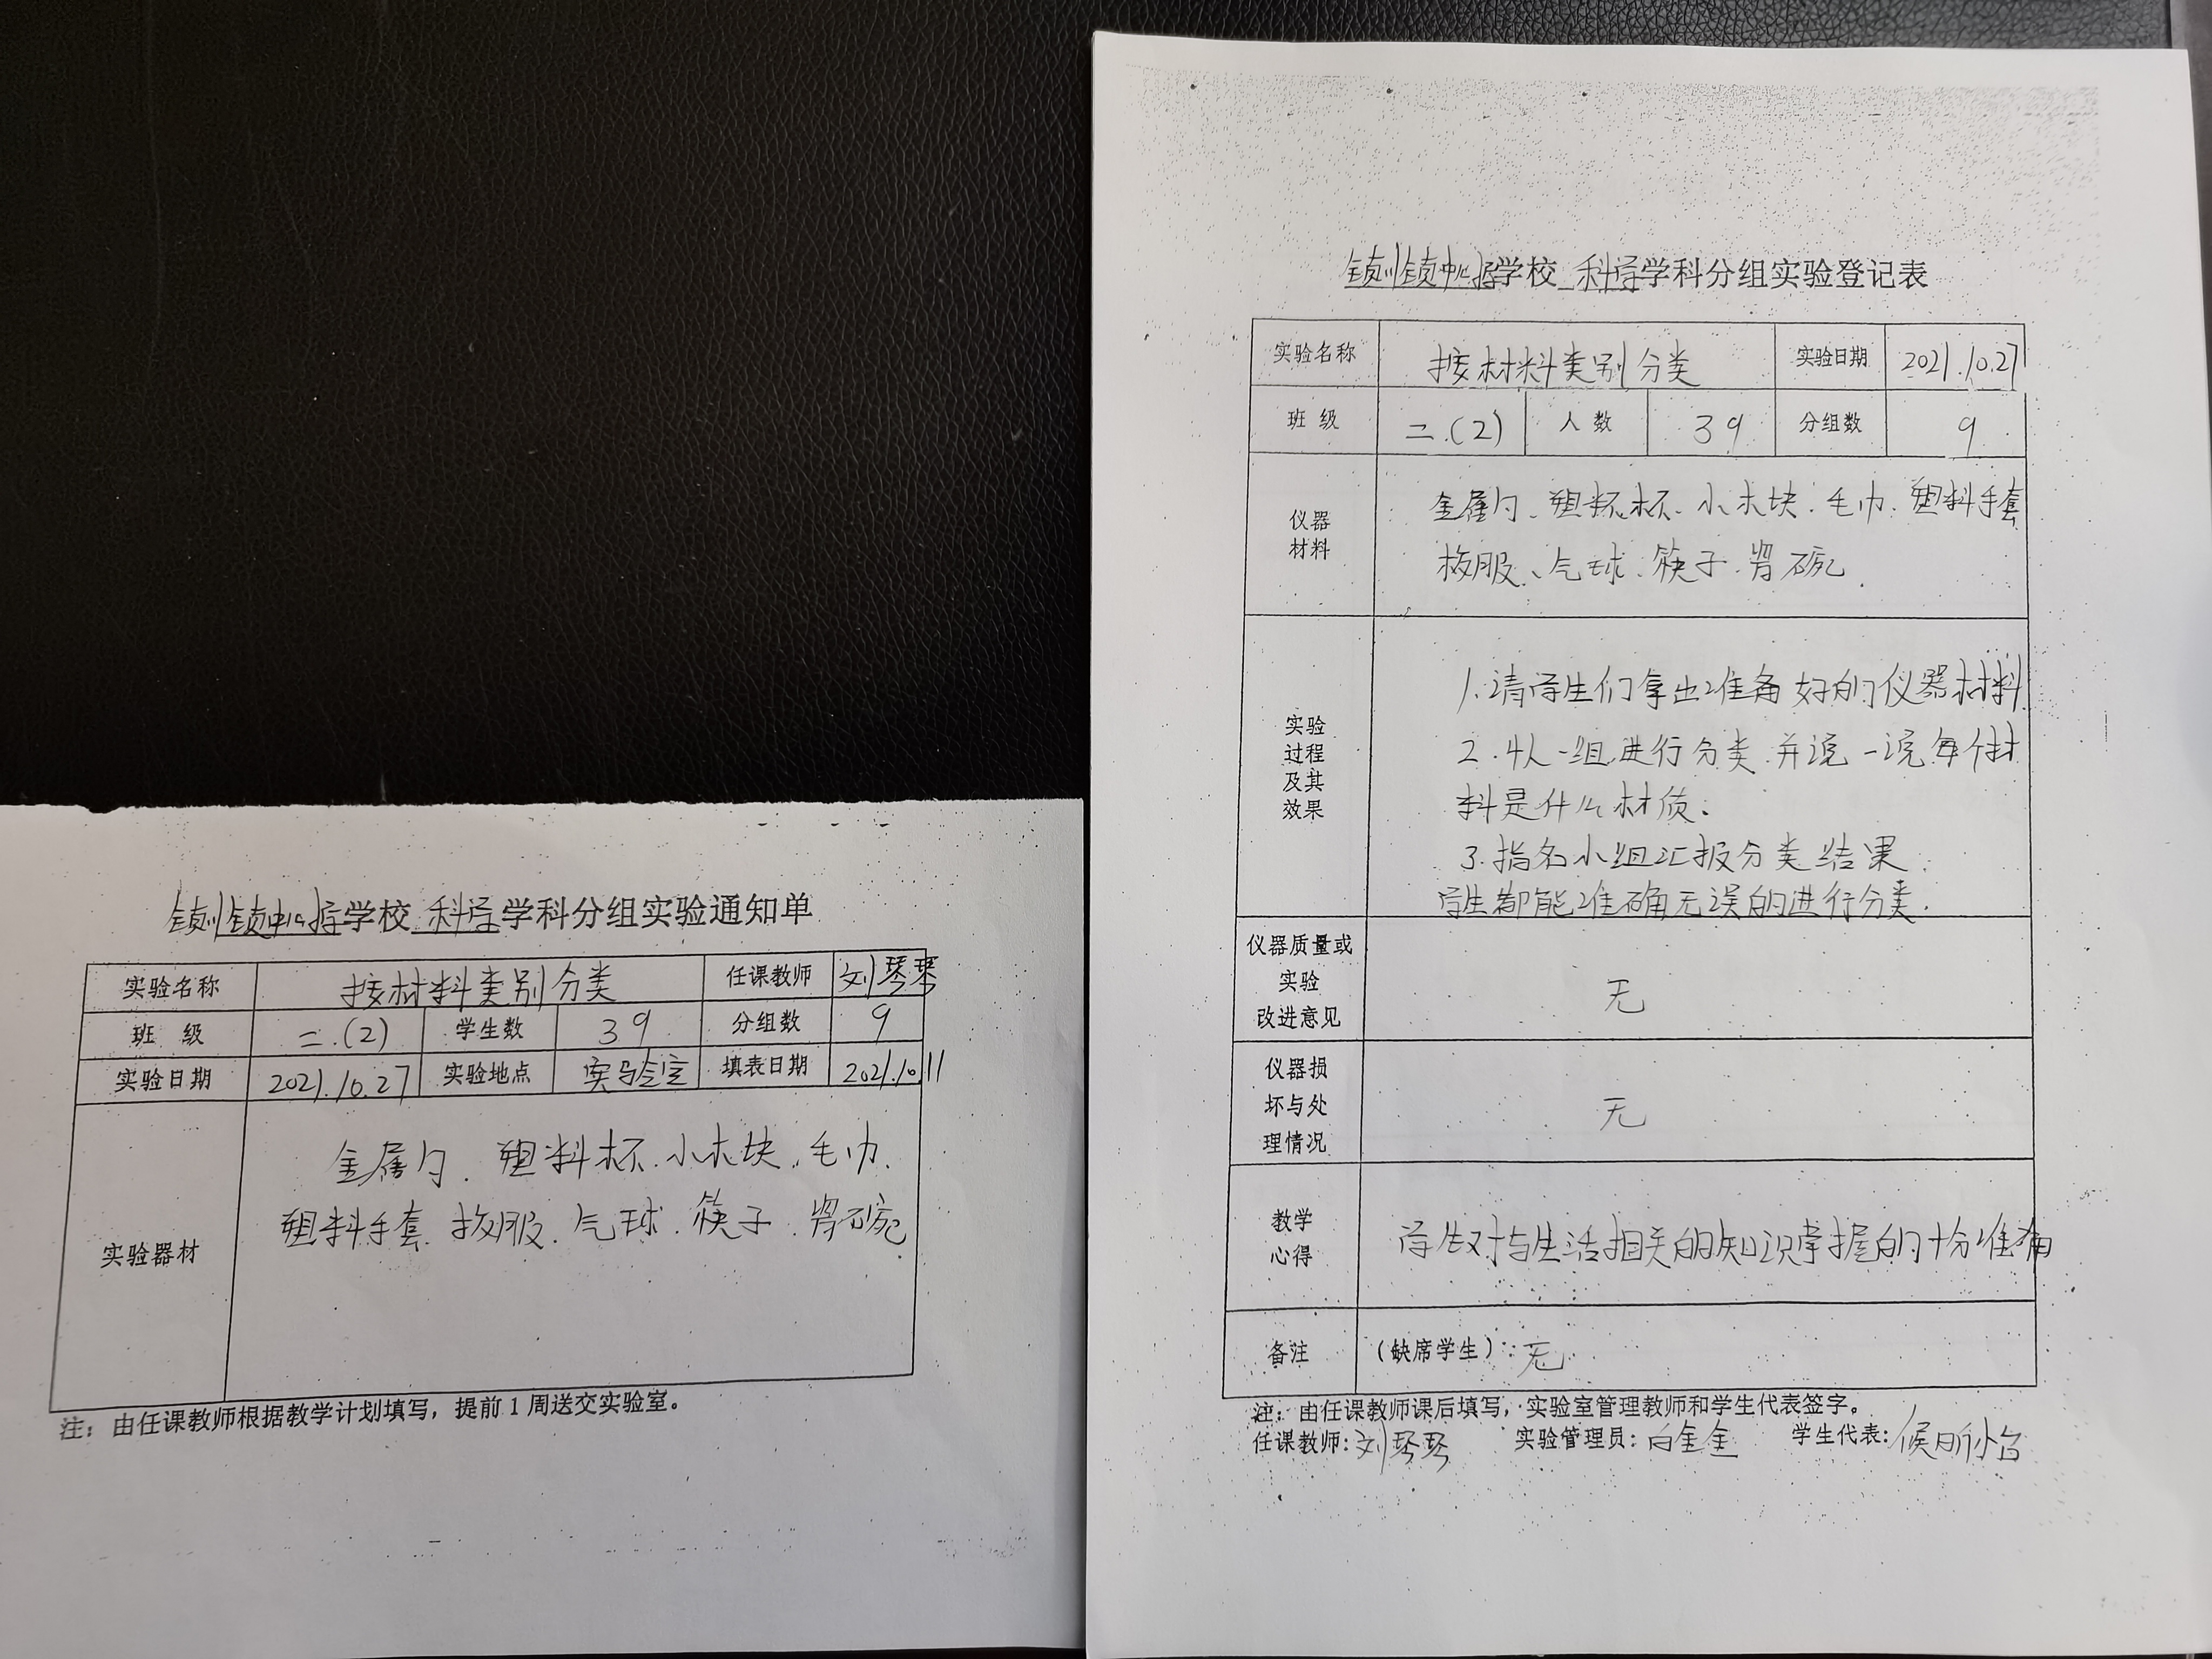 镇川镇中心小学校 科学学科分组实验通知单
实验名称 按材料类别分类 任课教师 刘琴琴
班 级 二.(2) 学生数 39 分组数 9
实验日期 2021.10.27 实验地点 实验室 填表日期 2021.10.11
实验器材
金属勺、塑料杯、小木块、毛巾、
塑料手套、校服、气球、筷子、
注：由任课教师根据教学计划填写，提前1周送交实验室。
学校 科学学科分组实验登记表
实验名称 按材料类别分类 实验日期 2021.10.27
班 级 二.(2) 人 数 39 分组数 9
仪器
材料
金属勺、塑料杯、小木块、毛巾、塑料手套
校服、气球、筷子、
实验
过程
及其
效果
1.请学生们拿出准备好的仪器材料
2.4人一组进行分类,并说一说每个材
料是什么材质。
3.指名小组汇报分类结果.
学生都能准确无误的进行分类.
仪器质量或
实验
改进意见
无
仪器损
坏与处
理情况
无
教学
心得
学生对与生活相关的知识掌握的十分准确
备注 (缺席学生)：无
注：由任课教师课后填写，实验室管理教师和学生代表签字。
任课教师：刘琴琴 实验管理员：白金金 学生代表：